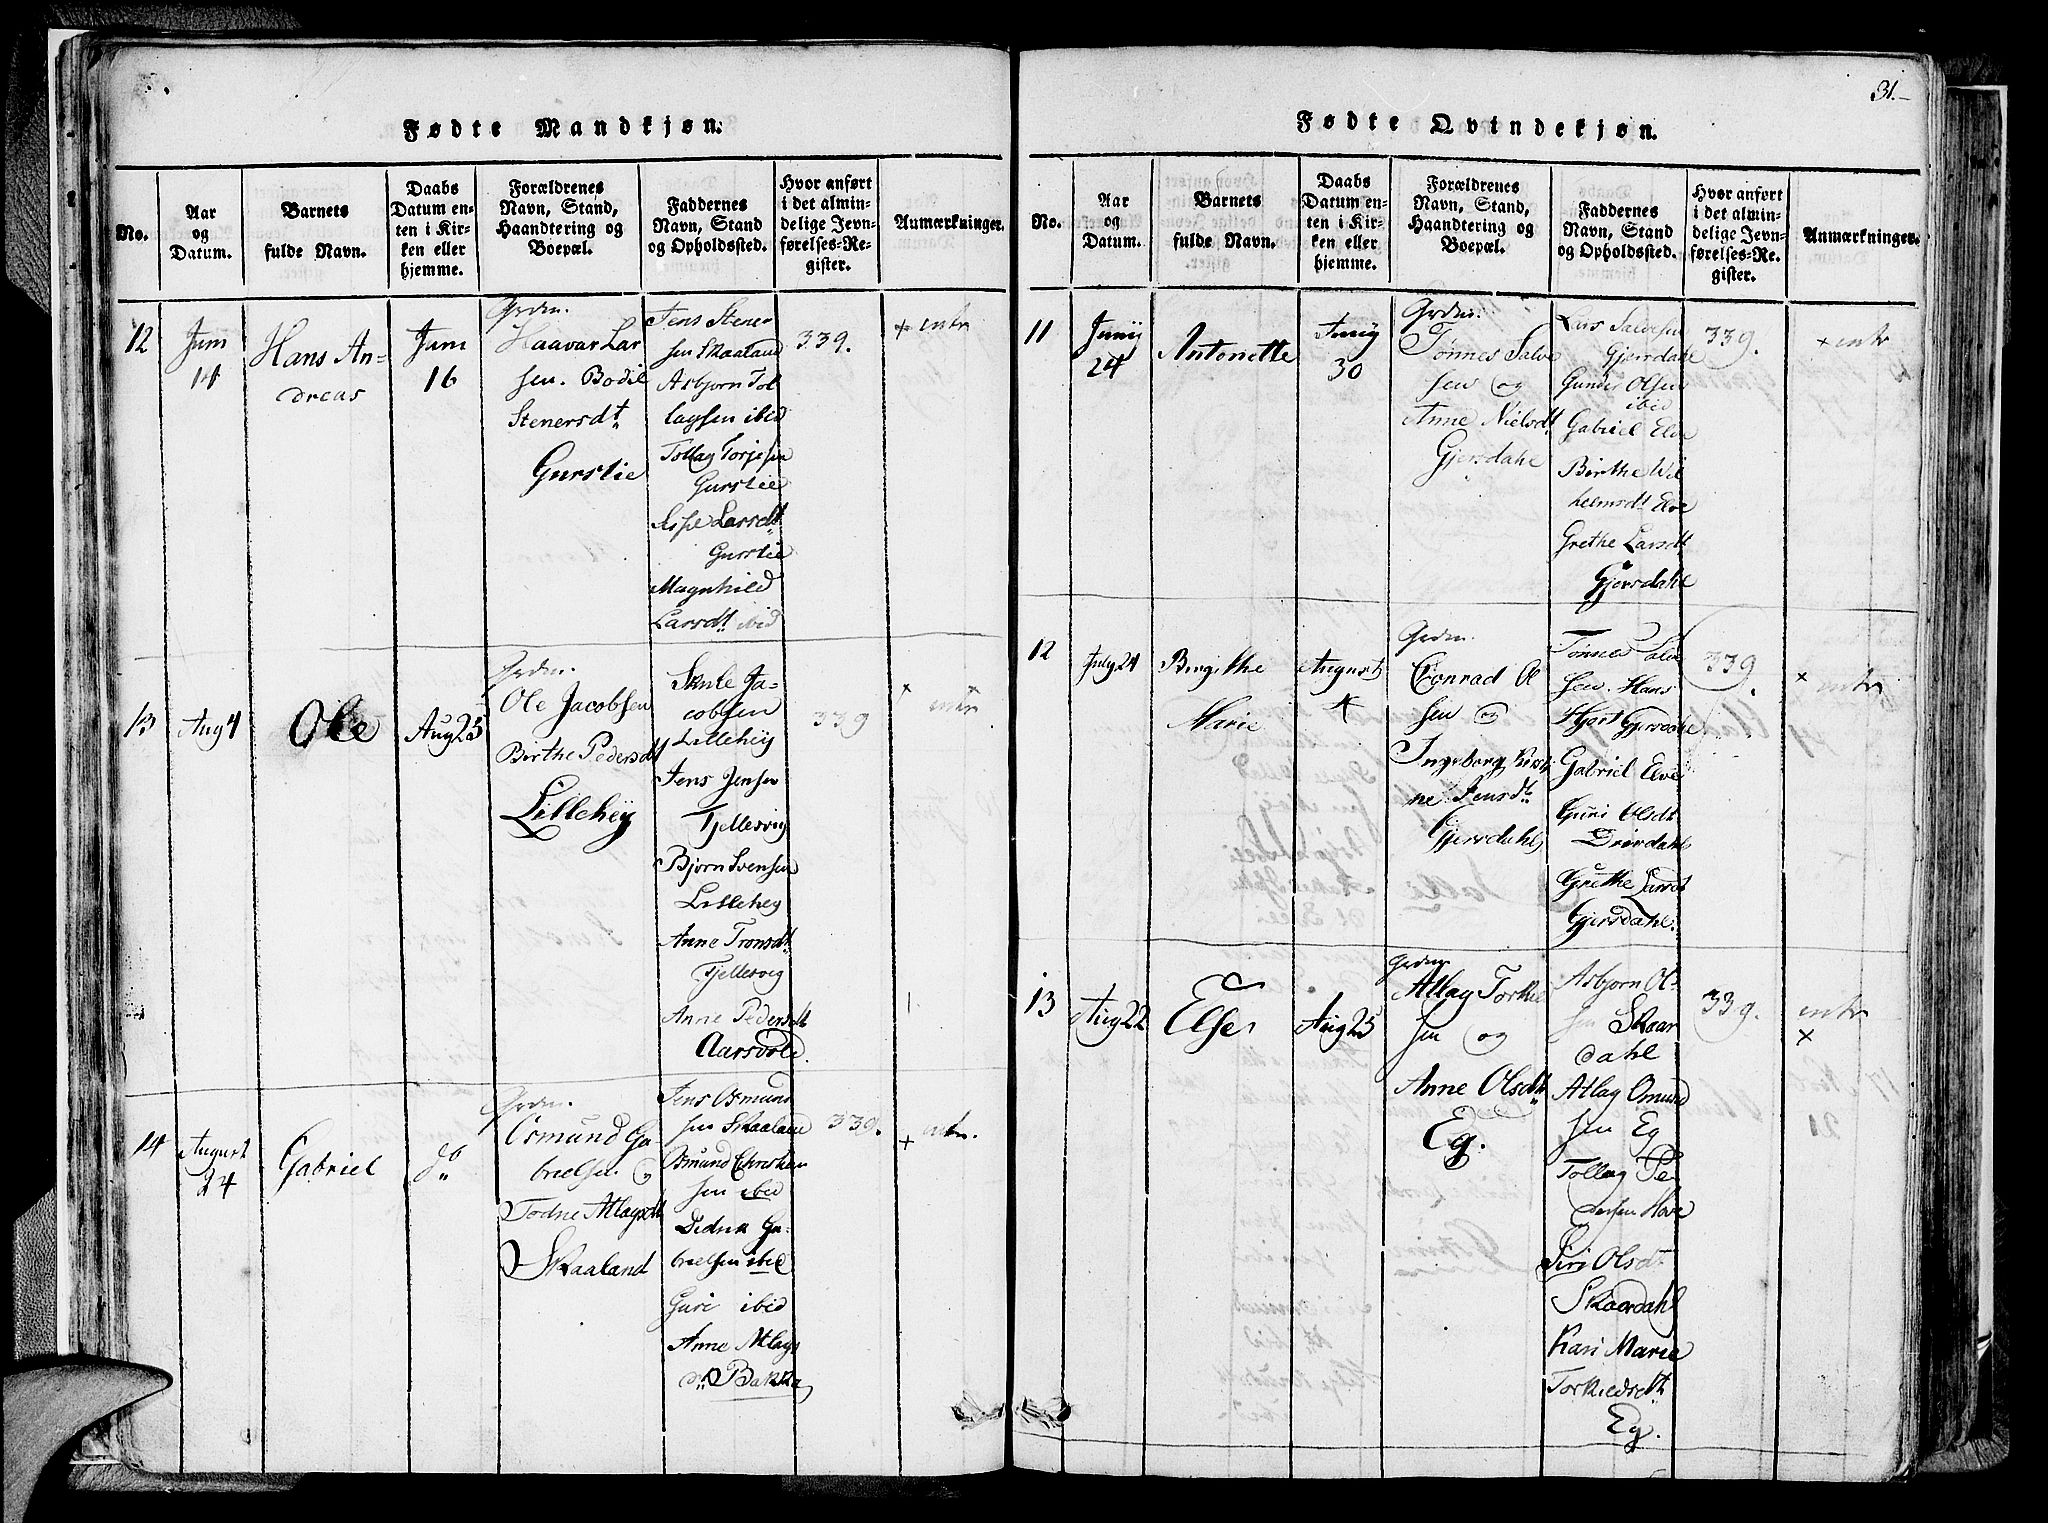 31.
Fødte Mandkjøn.
No.
Aar
og
Datum.
Barnets
fulde Navn.
Daabs
Datum en-
ten i Kir-
ken eller
hjemme.
Forældrenes
Navn, Stand,
Haandtering og
Boepæl.
Faddernes
Navn, Stand
og Opholdssted.
Hvor anført
i det almin-
delige Jevn-
førelses-Re-
gister.
Anmærkninger.
12
Juni
14
Hans An-
dreas
Juni
16
Grdm.
Haavar Lar
sen. Bodil
Stenersdt
Gurstie
Jens Stener
sen Skaaland
Asbjorn Tol
lagsen ibid
Tollag Torjesen
Gurstie
Larsdt
Gurstie
Magnhild
Larsdt ibid
339.
+ entr
13
Aug 4
Ole
Aug 25
Grdm.
Ole Jacobsen
Birthe Pedersdt
Lillehey
Skule Ja-
cobsen
Lillehey
Jens Jensen
Tjellesvig
Bjorn Svensen
Lillehey
Anne Tronsdt
Tjellesvig
Anne Pedersdt
Aarsvole
339
+ entr
14
August
24
Gabriel
do
Grdm.
Osmund Ga
brielsen og
Todne Atlagsdt
Skaaland
Jens Osmund
sen Skaaland
Osmund Christen
sen ibid
Didrik Ga-
brielsen ibid
Guri ibid
Anne Atlags
dt Bakka
339.
+ entr.
Fødte Qvindekjøn.
No.
Aar
og
Datum.
Barnets
fulde Navn.
Daabs
Datum en-
ten i Kir-
ken eller
hjemme.
Forældrenes
Navn, Stand,
Haandtering og
Boepæl.
Faddernes
Navn, Stand
og Opholdssted.
Hvor anført
i det almin-
delige Jevn-
førelses-Re-
gister.
Anmærkninger.
11
Junij
24
Antonette
Junij
30
Grdm.
Tønnes Salve
sen og
Anne Nielsdt
Gjersdahl
Lars Salvesen
Gjersdahl
Gunder Olsen
ibid
Gabriel Elve
Birthe Wil
helmsdt Elve
Grethe Larsdt
Gjersdahl
339.
+ entr
12
July 24
Birgithe
Marie
August
4
Grdm.
Conrad Ol
sen og
Ingeborg Kirsti
ne Jensdt
Gjersdahl
Tønnes Salve
sen. Hans
Hjort Gjersdahl
Gabriel Elve
Guri Olsdt
Drivdahl
Grethe Larsdt
Gjersdahl.
339.
+ entr
13
Aug 22
Else
Aug 25
Grdm.
Atlag Torkel
sen og
Anne Olsdt
Eg.
Asbjorn Ol-
sen Skaar
dahl
Atlag Omund
sen Eg
Tollag Pe
dersen Hove
Siri Olsdt
Skaardahl
Kari Marie
Torkildsdt
Eg.
339.
entr
+